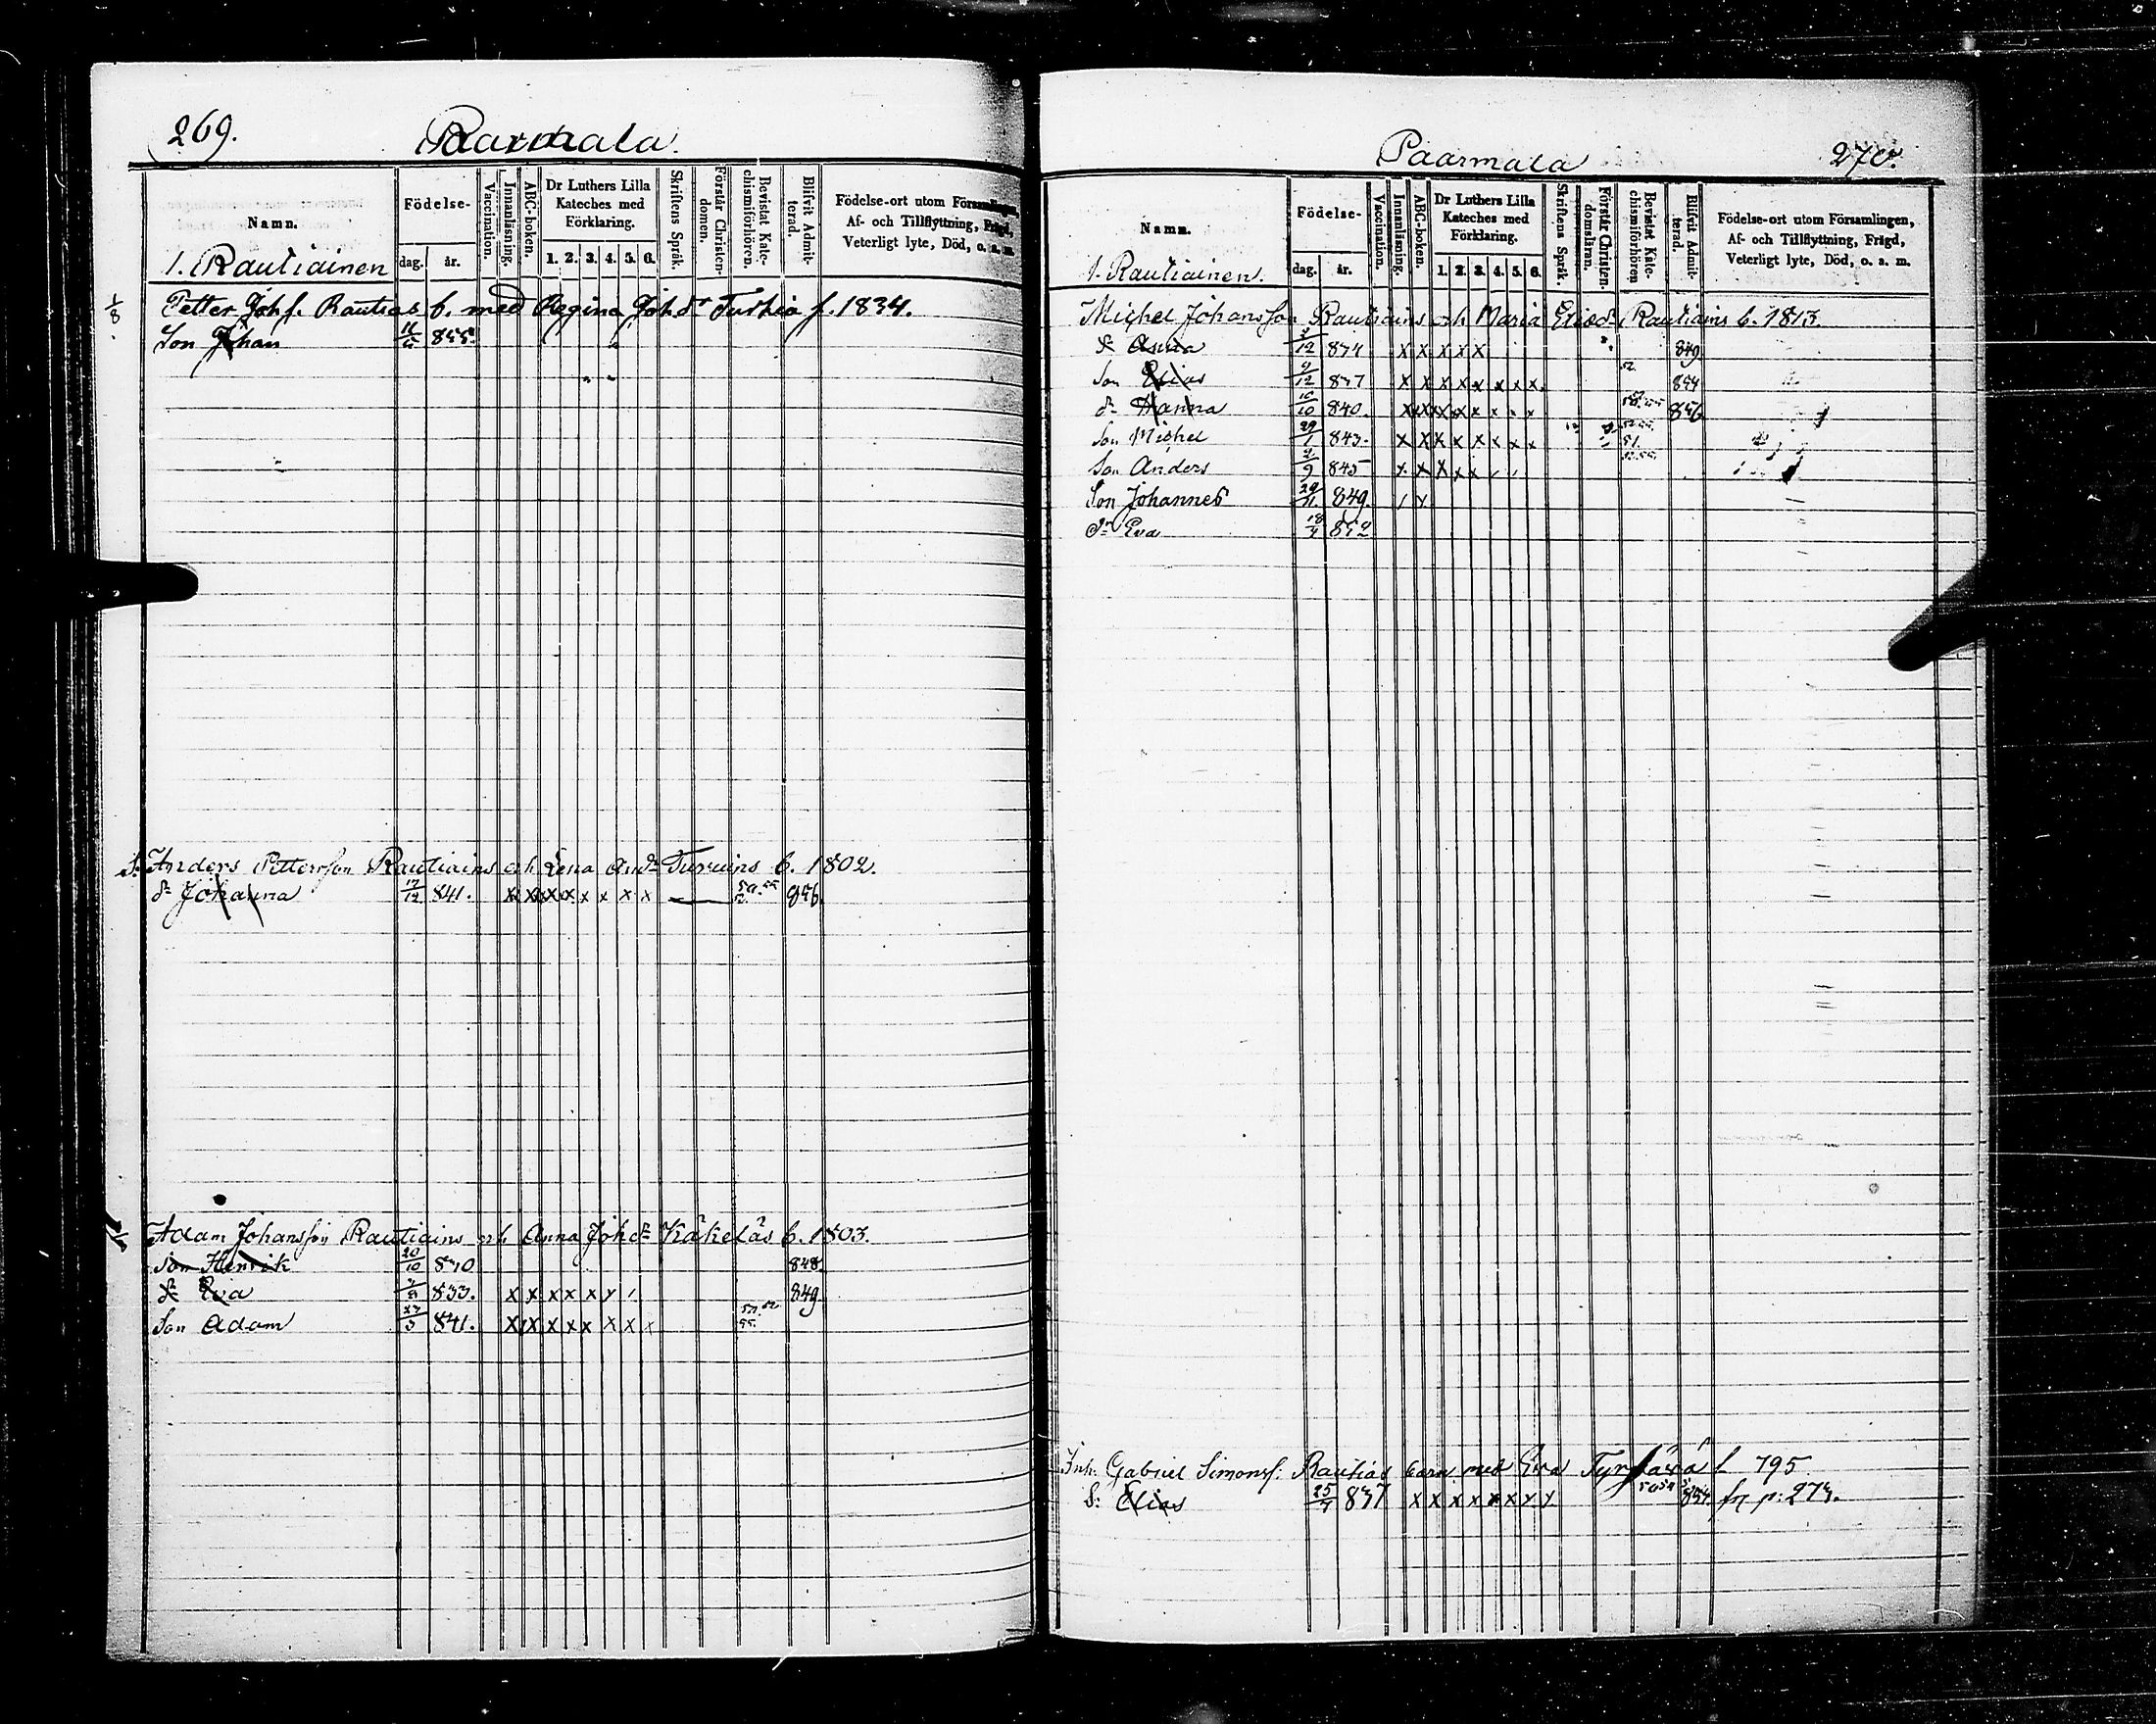 269.
Paarmala.
Namn.
Födelse-
dag. år.
Vaccination.
Innanläsning.
ABC-boken.
Dr Luthers Lilla Kateches med Förklaring.
1. 2. 3. 4. 5. 6.
Skriftens Språk.
Förstår Christendomen.
Bevistat Katechismiförhören.
Blifvit Admitterad.
Födelse-ort utom Församlingen, Af- och Tillflyttning, Frägd, Veterligt lyte, Död, o. a. m.
1. Rautiainen
Petter Joh f. Rautias b. med Regina Joh dr Turkia f. 1834.
Son Johan 855.
Anders Pettersson Rautiains och Lena And dr Turuins b. 1802.
dr Johanna 17/12 841. x x x x x x x x 856.
Adam Johansson Rautiains och Anna Joh dr Käkeläs b. 1803.
son Henrik 20/10 830 848
dr Eva 833. x x x x x x 849
Son Adam 841. x x x x x x x x 55.
Paarmala
270.
Namn.
Födelse-
dag. år.
Vaccination.
Innanläsning.
ABC-boken.
Dr Luthers Lilla Kateches med Förklaring.
1. 2. 3. 4. 5. 6.
Skriftens Språk.
Förstår Christendomsläran.
Bevistat Katechismiförhören
Blifvit Admitterad.
Födelse-ort utom Församlingen, Af- och Tillflyttning, Frägd, Veterligt lyte, Död, o. a. m.
1. Rautiainen.
Michel Johansson Rautiains och Maria Ericsdr Rautiains b. 1813.
dr Anna 834 x x x x x 849
Son Elias 837 x x x x x x x x. 52 854
dr Hanna 10/10 840. x x x x x x x x 856
Son Michel 29/1 843. x x x x x x x x
Son Anders 2/9 845 x x x x x
Son Johannes 29/11 849.
dr Eva 18/4 852
Inh. Gabriel Simonsf. Rautias barn med Eva Tyrkävä f. 795
S: Elias 837 x x x x x x x x 854 p: 273.